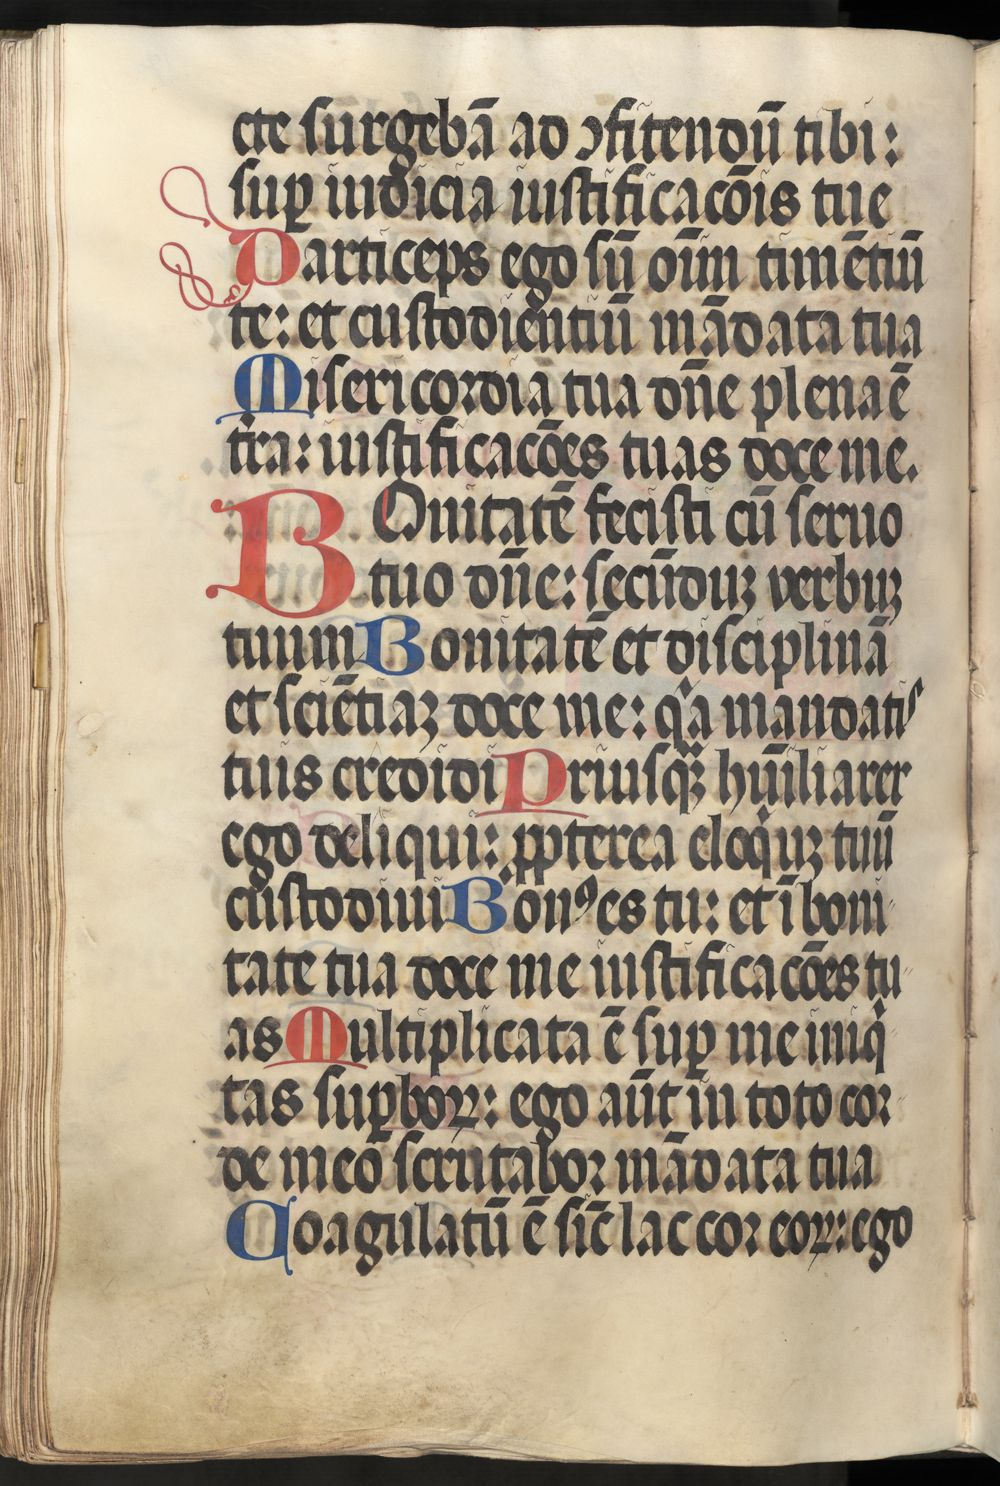 cte surgebā ad ꝯfitendū tibi:
suꝑ iudicia iustificacōis tue
Particeps ego sū oīm timētiū
te: et custodientiū mādata tua
Misericordia tua dn̄e plena ē
tr̄a: iustificacōes tuas doce me.
BOnitatē fecisti cū seruo
tuo dn̄e: secūduꝫ verbuꝫ
tuum Bonitatē et disciplinā
et sciētiaꝫ doce me: qͥa mandatis
tuis credidi Priusqꝫ̄ hūiliarer
ego deliqui: ꝓpterea eloqͥuꝫ tuū
custodiui Bonꝰ es tu: et ī boni
tate tua doce me iustificacōes tu
as Multiplicata ē suꝑ me iniqͥ
tas suꝑboꝝ: ego aūt in toto cor
de meo scrutabor mādata tua
Coagulatū ē sic̄ lac cor eoꝝ: ego